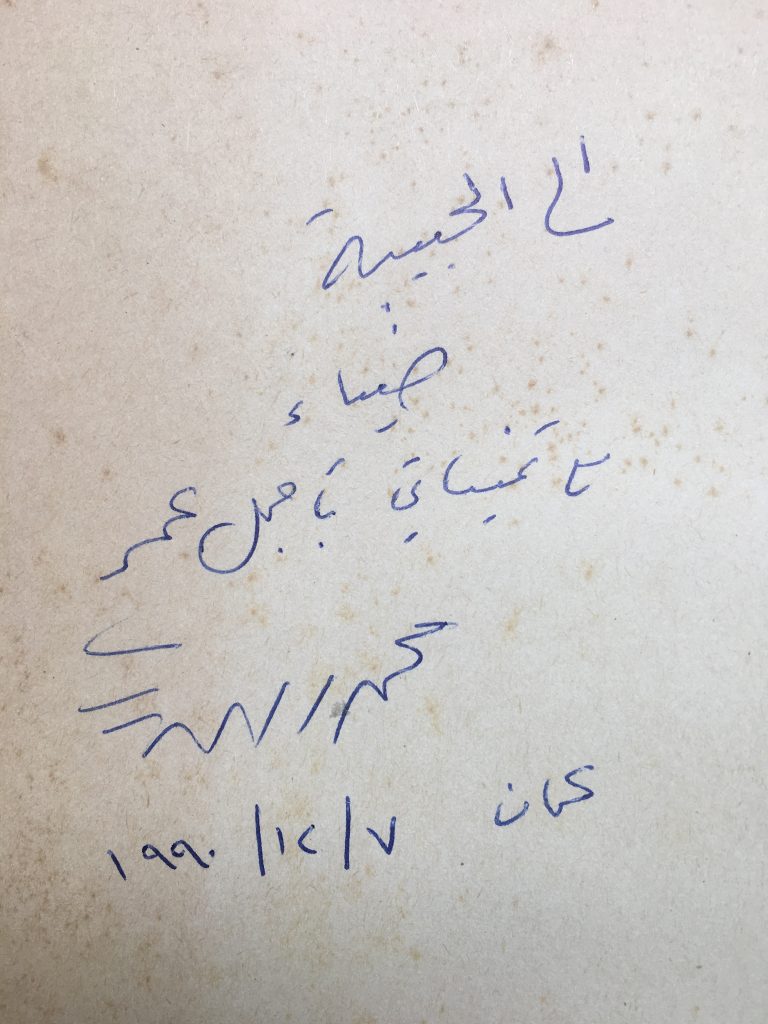 الى الحبيبة
ضياء
مع تمنياتي بأجمل عمر
محمود
عمان ٧/١٢/١٩٩٠